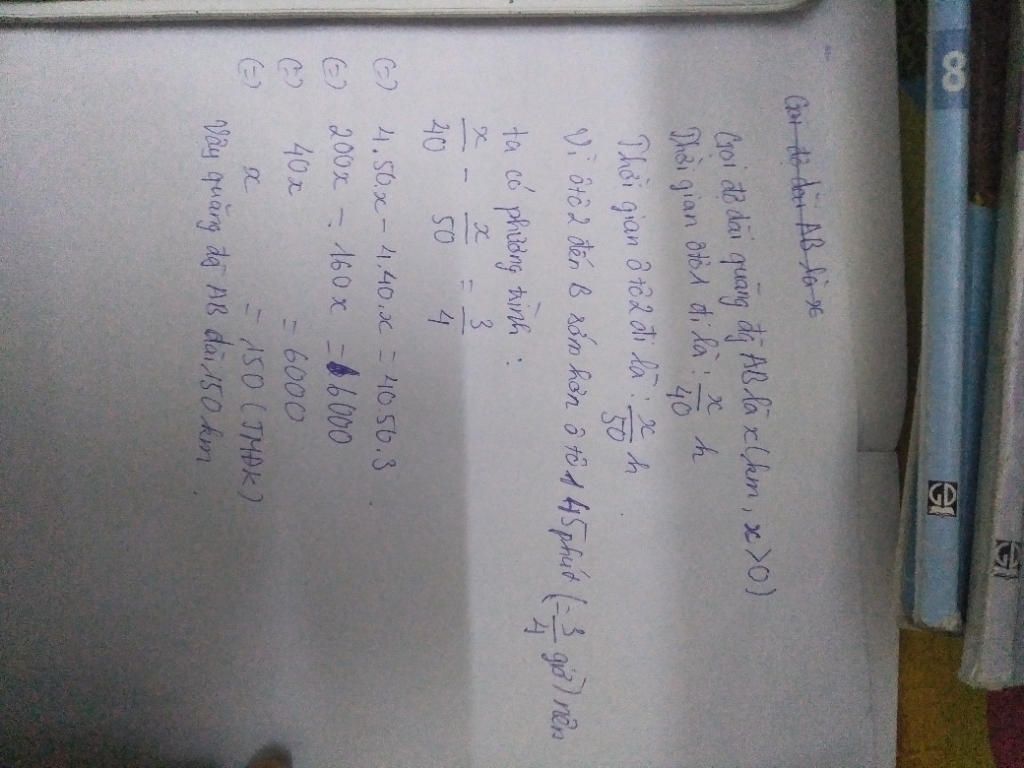 8
Gọi độ dài AB là x
Gọi độ dài quãng đg AB là x (km, x > 0)
Thời gian ôtô 1 đi là : x/40 h
Thời gian ô tô 2 đi là : x/50 h
Vì ôtô 2 đến B sớm hơn ô tô 1 45 phút (= 3/4 giờ) nên
ta có phương trình :
x/40 - x/50 = 3/4
(=) 4.50.x - 4.40.x = 40.50.3
(=) 200x - 160x = 6000
(=) 40x = 6000
(=) x = 150 (TMĐK)
Vậy quãng đg AB dài 150 km